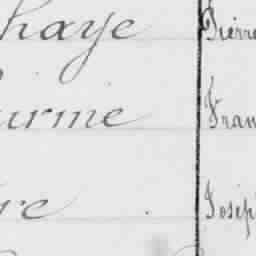 haye Pierre
urmie Fran
re Josep